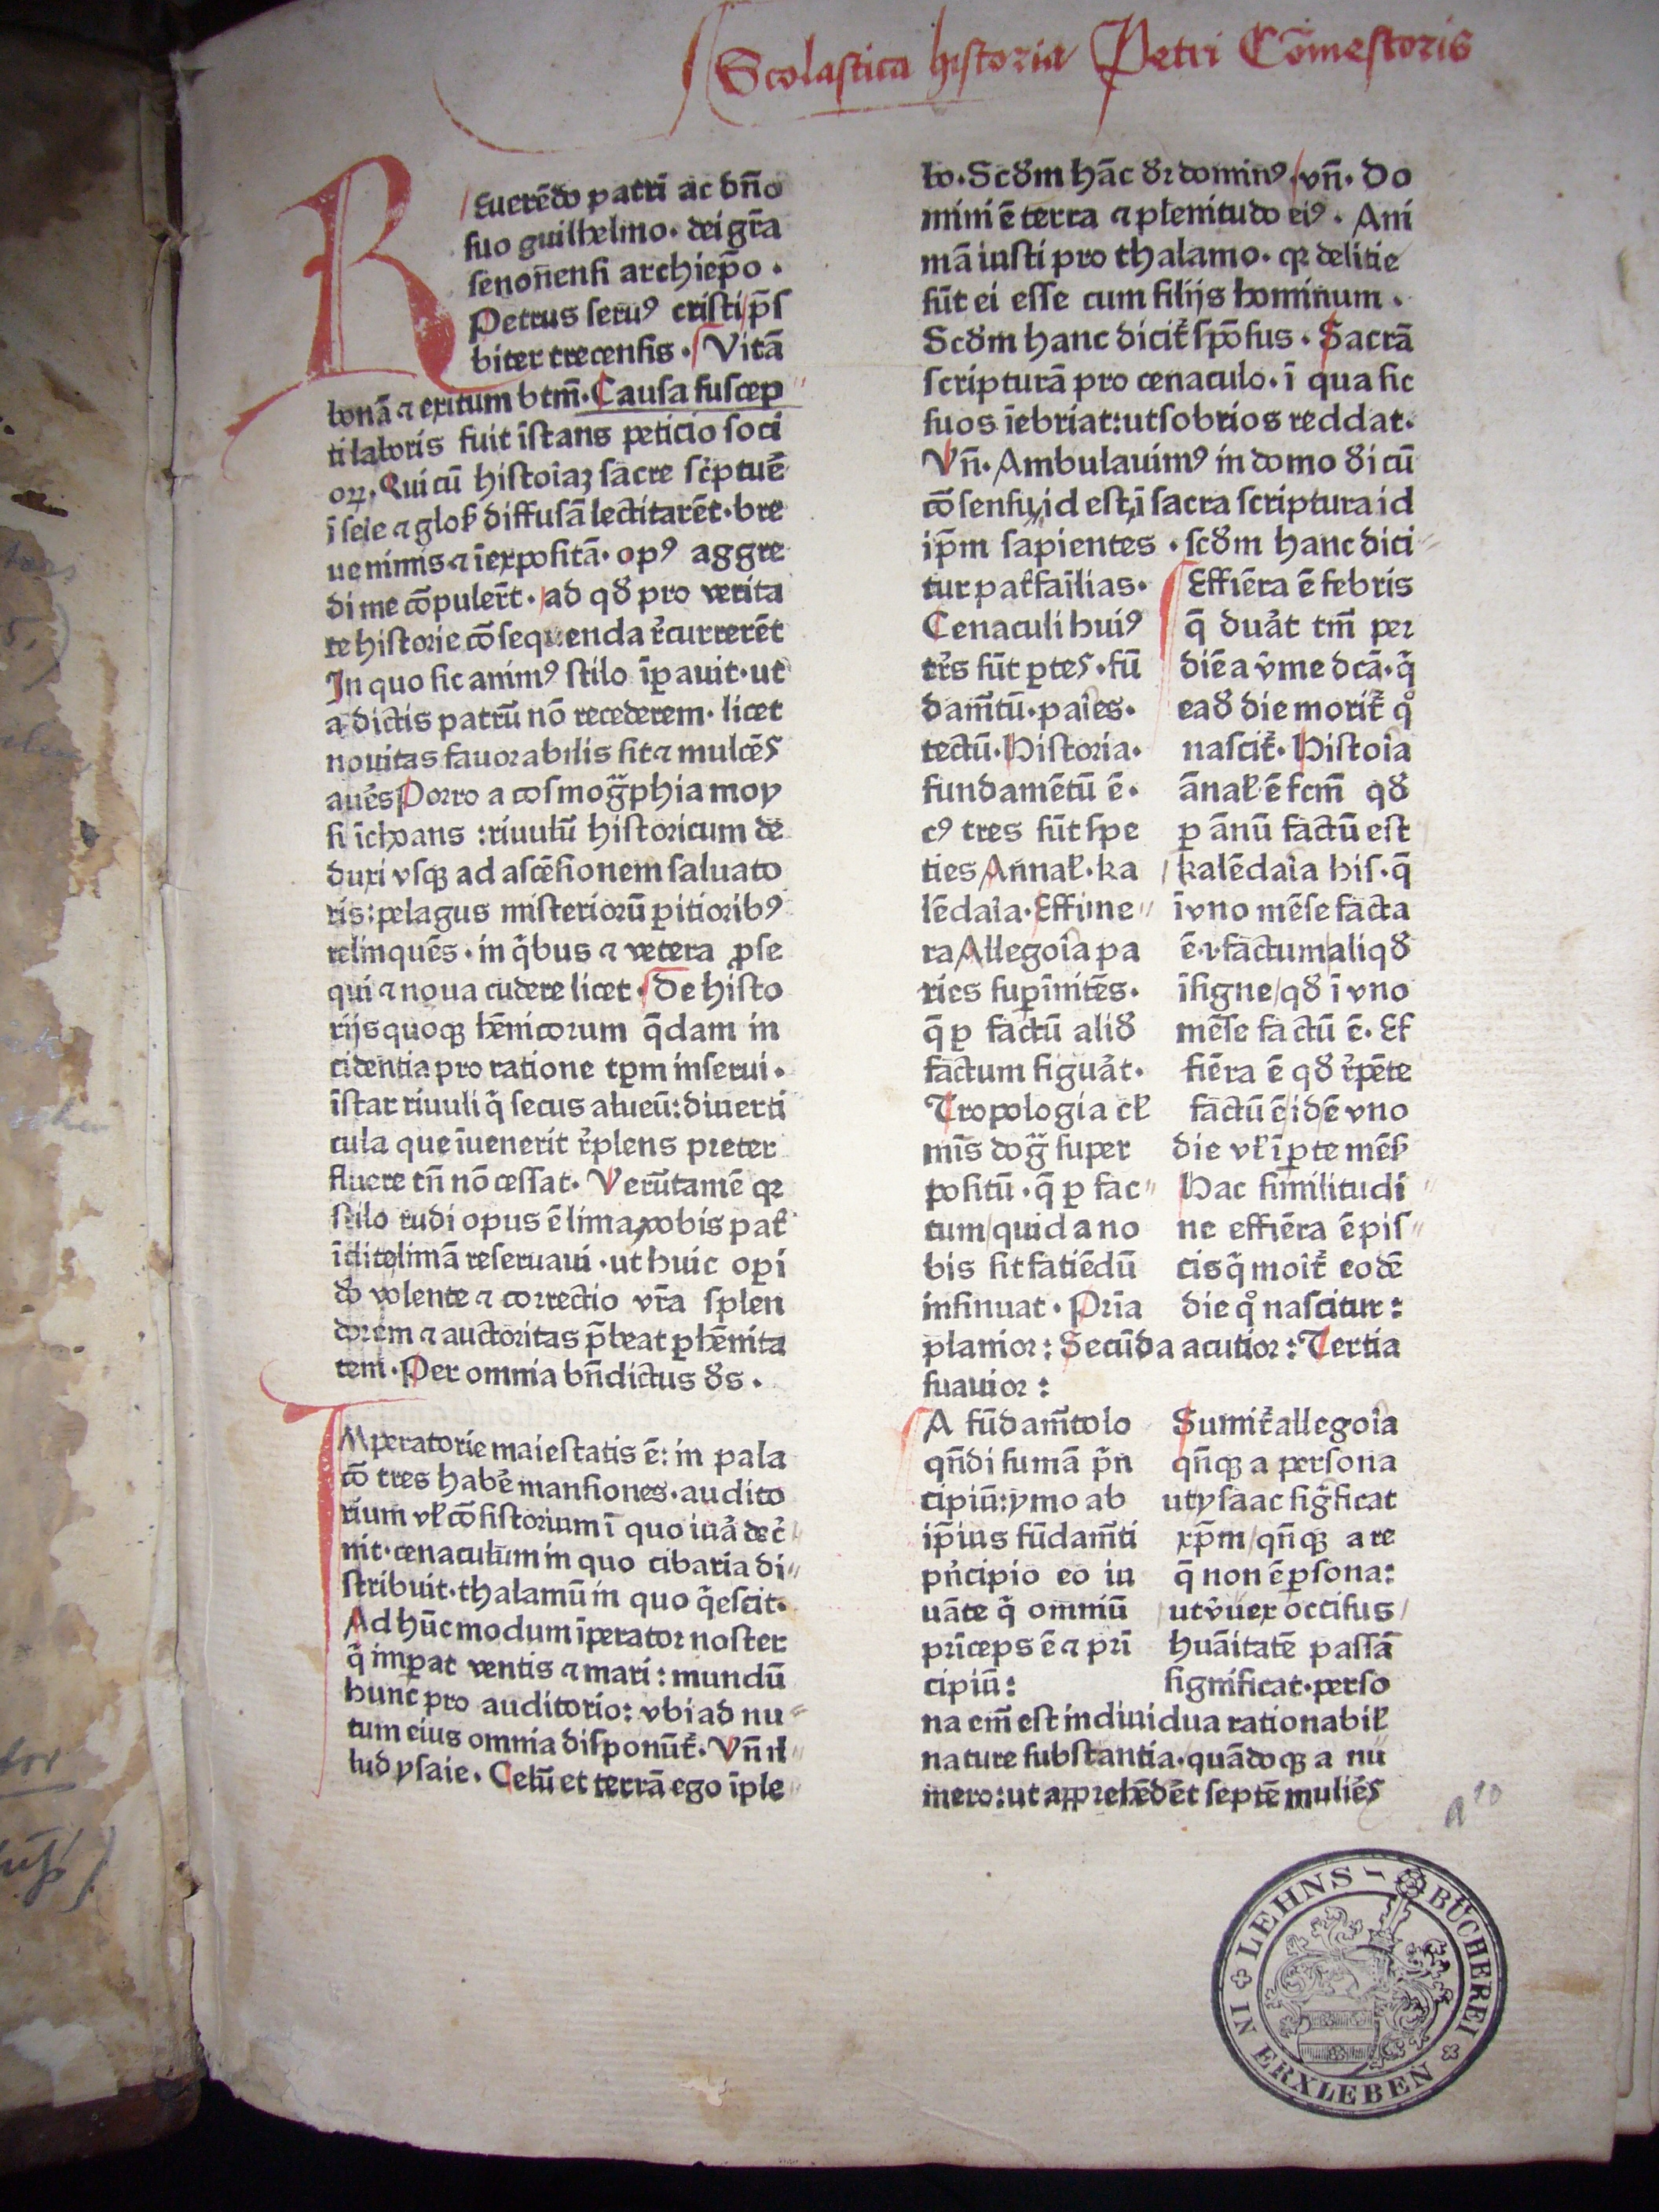 Scolastica historia Petri Cōmestoris
REuerēdo patri ac dn̄o
suo guilhelmo. dei gr̄a
senon̄ensi archiep̄o.
Petrus seruꝰ cristi p̄s
biter trecensis. Vitā
bonā ⁊ exitum btm̄. Causa suscep
ti laboris fuit īstans peticio soci
oꝝ. Qui cū histoīaꝫ sacre sc̄ptuē
ī serie ⁊ glos̄ diffusā lectitarēt. bre
ue nimis ⁊ īexpositā. opꝰ aggre
di me cōpuler̄t. ad qd̄ pro verita
te historie cōsequenda r̄currerēt
In quo sic animꝰ stilo īꝑauit. ut
a dictis patrū nō recederem. licet
nouitas fauorabilis sit ⁊ mulcēs
aures Porro a cosmogͣphia moy
si īchoans : riuulū historicum de
duxi vsqꝫ ad ascēsionem saluato
ris: pelagus misteriorū ꝑitioribꝰ
relinquēs. in q̄bus ⁊ vetera ꝓse
qui ⁊ noua cudere licet. De histo
rijs quoqꝫ hēnicorum q̄dam in
cidentia pro ratione tꝑm inserui.
īstar riuuli q̄ secus alueū: diuerti
cula que īuenerit r̄plens preter
fluere tn̄ nō cessat. Verūtamē qꝛ
stilo rudi opus ē lima vobis pat̄
īdite limā reseruaui. ut huic oꝑi
do volente ⁊ correctio vr̄a splen
dorem ⁊ auctoritas p̄beat ꝑhēnita
tem. Per omnia bn̄dictus ds̄.
IMperatorie maiestatis ē: in pala
cō tres habē mansiones. audito
rium vl̄ cōsistorium ī quo iuͣ dec̄
nit. cenaculum in quo cibaria di
stribuit. thalamū in quo q̄escit.
Ad hūc modum īperator noster
q̄ imꝑat ventis ⁊ mari: mundū
hunc pro auditorio: vbi ad nu
tum eius omnia disponūt̄. Vn̄ il
lud ysaie. Celū et terrā ego īple
bo. Scd̄m hāc dr̄ dominꝰ. vn̄. Do
mini ē terra ⁊ plenitudo eiꝰ. Ani
mā iusti pro thalamo. qꝛ delitie
sūt ei esse cum filijs hominum.
Scd̄m hanc dicit̄ spōsus. Sacrā
scripturā pro cenaculo. ī qua sic
suos īebriat: ut sobrios reddat.
Vn̄. Ambulauimꝰ in domo di cū
cōsensu, id est, ī sacra scriptura id
ip̄m sapientes. scd̄m hanc dici
tur pat̄fam̄ilias.
Cenaculi huiꝰ
tr̄s sūt ꝑtes. fū
dam̄tū. paīes.
tectū. Historia.
fundamētū ē.
cꝰ tres sūt spe
ties Annal̄. ka
lēdaīa. Effime
ra Allegoīa pa
ries suꝑīnitēs.
q̄ ꝑ factū alid̄
factum figuāt.
Tropologia cl̄
mīs dogͣ super
positū. q̄ ꝑ fac
tum quid a no
bis sit fatiēdū
insinuat. Prīa
Effiēra ē febris
q̄ duāt tm̄ per
diē a v̄me dc̄a. q̄
ead̄ die morit̄ qͦ
nascit̄. Histoīa
ānal̄ ē fcm̄ qd̄
ꝑ ānū factū est
kalēdaīa his. q̄
ī vno mēse facta
ē. ⁊. factum aliqd̄
īsigne qd̄ ī vno
mēse factū ē. Ef
fiēra ē qd̄ r̄pēte
factū ē idē vno
die vl̄ ī ꝑte mēs̄
Hac similitudi
ne effiēra ē pis
cis q̄ moīt̄ eodē
die qͦ nascitur:
planior: Secūda acutior: Tertia
suauior:
A fūdam̄to lo
qn̄di sumā p̄n
cipiū: ymo ab
ip̄ius fūdam̄ti
pn̄cipio eo iu
uāte q̄ omniū
prīceps ē ⁊ prī
cipiū:
Sumit̄ allegoīa
qn̄qꝫ a persona
ut ysaac sigͥficat
xp̄m qn̄qꝫ a re
q̄ non ē ꝑsona:
ut v̄uex occisus
huāitatē passā
significat. perso
na em̄ est indiuidua rationabil̄
nature substantia. quādoqꝫ a nu
mero: ut apprehēdēt septē mulieͤs
a 10
LEHNS-BÜCHEREI IN ERXLEBEN